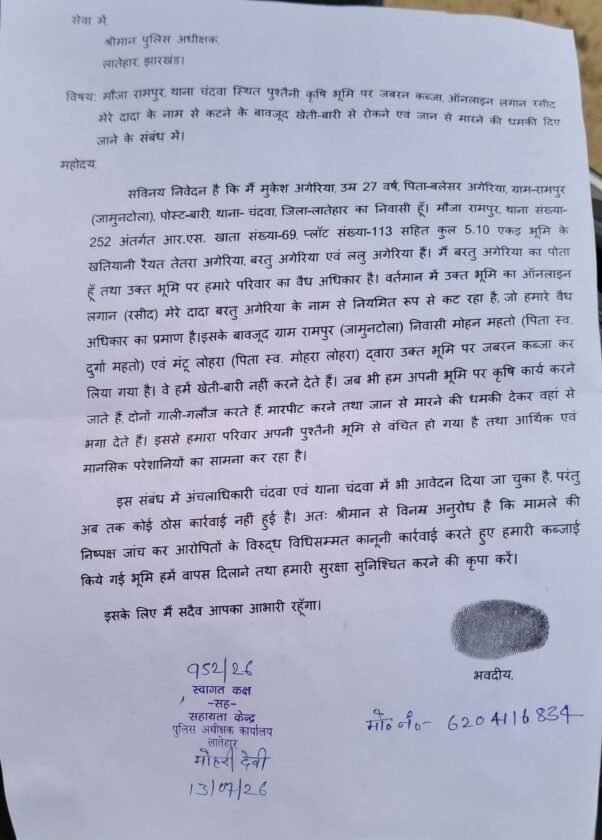 सेवा में,
श्रीमान पुलिस अधीक्षक,
लातेहार, झारखंड।
विषय: मौजा रामपुर, थाना चंदवा स्थित पुश्तैनी कृषि भूमि पर जबरन कब्जा, ऑनलाइन लगान रसीद
मेरे दादा के नाम से कटने के बावजूद खेती-बारी से रोकने एवं जान से मारने की धमकी दिए
जाने के संबंध में।
महोदय,
सविनय निवेदन है कि मैं मुकेश अगेरिया, उम्र 27 वर्ष, पिता-बलेसर अगेरिया, ग्राम-रामपुर
(जामुनटोला), पोस्ट-बारी, थाना- चंदवा, जिला-लातेहार का निवासी हूँ। मौजा रामपुर, थाना संख्या-
252 अंतर्गत आर.एस. खाता संख्या-69, प्लॉट संख्या-113 सहित कुल 5.10 एकड़ भूमि के
खतियानी रैयत तेतरा अगेरिया, बरतु अगेरिया एवं ललु अगेरिया हैं। मैं बरतु अगेरिया का पोता
हूँ तथा उक्त भूमि पर हमारे परिवार का वैध अधिकार है। वर्तमान में उक्त भूमि का ऑनलाइन
लगान (रसीद) मेरे दादा बरतु अगेरिया के नाम से नियमित रूप से कट रहा है, जो हमारे वैध
अधिकार का प्रमाण है।इसके बावजूद ग्राम रामपुर (जामुनटोला) निवासी मोहन महतो (पिता स्व.
दुर्गा महतो) एवं मंटू लोहरा (पिता स्व. मोहरा लोहरा) द्वारा उक्त भूमि पर जबरन कब्जा कर
लिया गया है। वे हमें खेती-बारी नहीं करने देते हैं। जब भी हम अपनी भूमि पर कृषि कार्य करने
जाते हैं, दोनों गाली-गलौज करते हैं, मारपीट करने तथा जान से मारने की धमकी देकर वहां से
भगा देते हैं। इससे हमारा परिवार अपनी पुश्तैनी भूमि से वंचित हो गया है तथा आर्थिक एवं
मानसिक परेशानियों का सामना कर रहा है।
इस संबंध में अंचलाधिकारी चंदवा एवं थाना चंदवा में भी आवेदन दिया जा चुका है, परंतु
अब तक कोई ठोस कार्रवाई नहीं हुई है। अतः श्रीमान से विनम्र अनुरोध है कि मामले की
निष्पक्ष जांच कर आरोपितों के विरुद्ध विधिसम्मत कानूनी कार्रवाई करते हुए हमारी कब्जाई
किये गई भूमि हमें वापस दिलाने तथा हमारी सुरक्षा सुनिश्चित करने की कृपा करें।
इसके लिए मैं सदैव आपका आभारी रहूँगा।
भवदीय,
मो० नं०- 6204116834
952/26
स्वागत कक्ष
-सह-
सहायता केन्द्र
पुलिस अधीक्षक कार्यालय
लातेहार
मोहरी देवी
13/07/26